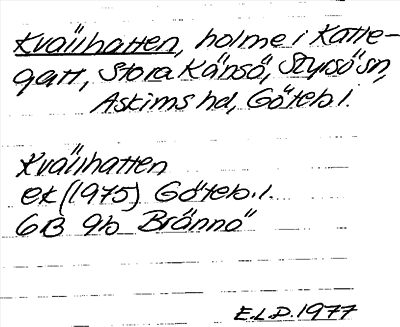 Kvällhatten, holme i Katte-
gatt, Stora Känsö, Styrsö sn,
Askims hd, Göteb. l.
Kvällhatten
ek (1975) Göteb. l.
6B 9b Brännö
E.L.D. 1977